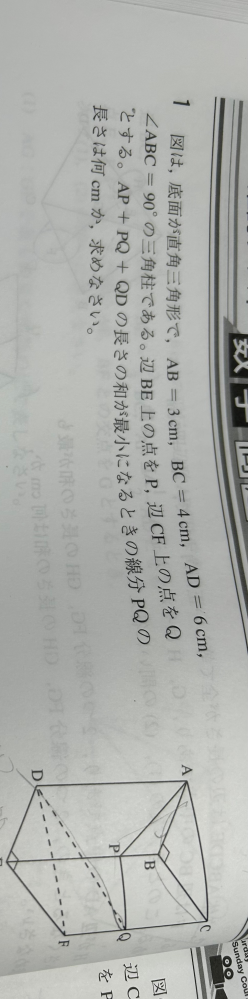 数学
1 図は，底面が直角三角形で，AB = 3cm，BC = 4cm，AD = 6cm，
∠ABC = 90°の三角柱である。辺BE上の点をP，辺CF上の点をQ
とする。AP + PQ + QDの長さの和が最小になるときの線分PQの
長さは何cmか，求めなさい。
A
C
B
P
Q
D
F
図
辺C
をP